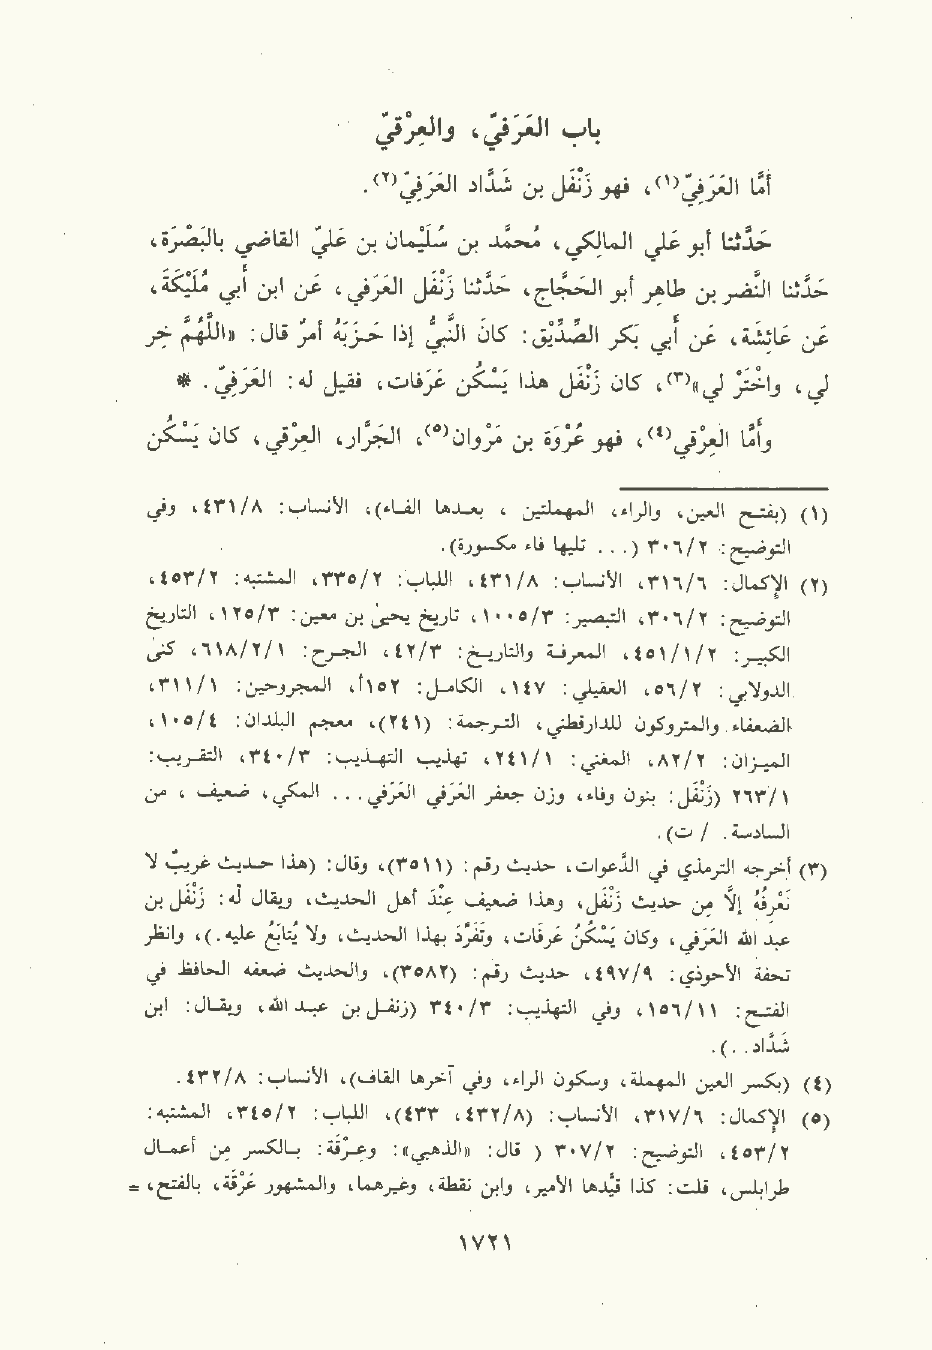 باب العَرَفيّ، والعِرْقيّ
أمَّا العَرَفِيّ(١)، فهو زَنْفَل بن شَدَّاد العَرَفِيّ(٢).
حَدَّثنا أبو عَلي المالِكي، مُحمَّد بن سُلَيْمان بن عَليّ القاضي بالبَصْرَة،
حَدَّثنا النَّضر بن طاهِر أبو الحَجَّاج، حَدَّثنا زَنْفَل العَرَفي، عَن ابن أبي مُلَيْكَة،
عَن عائِشَة، عَن أبي بَكر الصِّدِّيق: كانَ النَّبيّ إذا حَزَبَهُ أمرٌ قال: «اللَّهُمّ خِر
لي، واخْتَرْ لي»(٣)، كان زَنْفَل هذا يَسْكُن عَرَفات، فقيل له: العَرَفِيّ. *
وأمَّا العِرْقي(٤)، فهو عُرْوَة بن مَرْوان(٥)، الجَرَّار، العِرْقي، كان يَسْكُن
(١) (بفتح العين، والراء، المهملتين ، بعدها الفاء)، الأنساب: ٤٣١/٨، وفي
التوضيح: ٣٠٦/٢ (... تليها فاء مكسورة).
(٢) الإكمال: ٣١٦/٦، الأنساب: ٤٣١/٨، اللباب: ٣٣٥/٢، المشتبه: ٤٥٣/٢،
التوضيح: ٣٠٦/٢، التبصير: ١٠٠٥/٣، تاريخ يحيىٰ بن معين: ١٢٥/٣، التاريخ
الكبير: ٤٥١/١/٢، المعرفة والتاريخ: ٤٢/٣، الجرح: ٦١٨/٢/١، كنى
الدولابي: ٥٦/٢، العقيلي: ١٤٧، الكامل: ١٥٢أ، المجروحين: ٣١١/١،
الضعفاء والمتروكون للدارقطني، الترجمة: (٢٤١)، معجم البلدان: ١٠٥/٤،
الميزان: ٨٢/٢، المغني: ٢٤١/١، تهذيب التهذيب: ٣٤٠/٣، التقريب:
٢٦٣/١ (زَنْفَل: بنون وفاء، وزن جعفر العَرَفي العَرَفي... المكي، ضعيف ، من
السادسة. / ت).
(٣) أخرجه الترمذي في الدَّعوات، حديث رقم: (٣٥١١)، وقال: (هذا حديث غريبٌ لا
نَعْرِفُهُ إلَّا من حديث زَنْفَل، وهذا ضعيف عِنْدَ أهل الحديث، ويقال لَه: زَنْفَل بن
عبد الله العَرَفي، وكان يَسْكُنُ عَرفات، وتَفَرَّد بهذا الحديث، ولا يُتابَعُ عليه.)، وانظر
تحفة الأحوذي: ٤٩٧/٩، حديث رقم: (٣٥٨٢)، والحديث ضعفه الحافظ في
الفتح: ١٥٦/١١، وفي التهذيب: ٣٤٠/٣ (زنفل بن عبد الله، ويقال: ابن
شَدَّاد...).
(٤) (بكسر العين المهملة، وسكون الراء، وفي آخرها القاف)، الأنساب: ٤٣٢/٨.
(٥) الإكمال: ٣١٧/٦، الأنساب: (٤٣٢/٨، ٤٣٣)، اللباب: ٣٤٥/٢، المشتبه:
٤٥٣/٢، التوضيح: ٣٠٧/٢ ( قال: «الذهبي»: وعِرْقَة: بالكسر مِن أعمال
طرابلس، قلت: كذا قيَّدها الأمير، وابن نقطة، وغيرهما، والمشهور عَرْقَة، بالفتح، =
١٧٢١